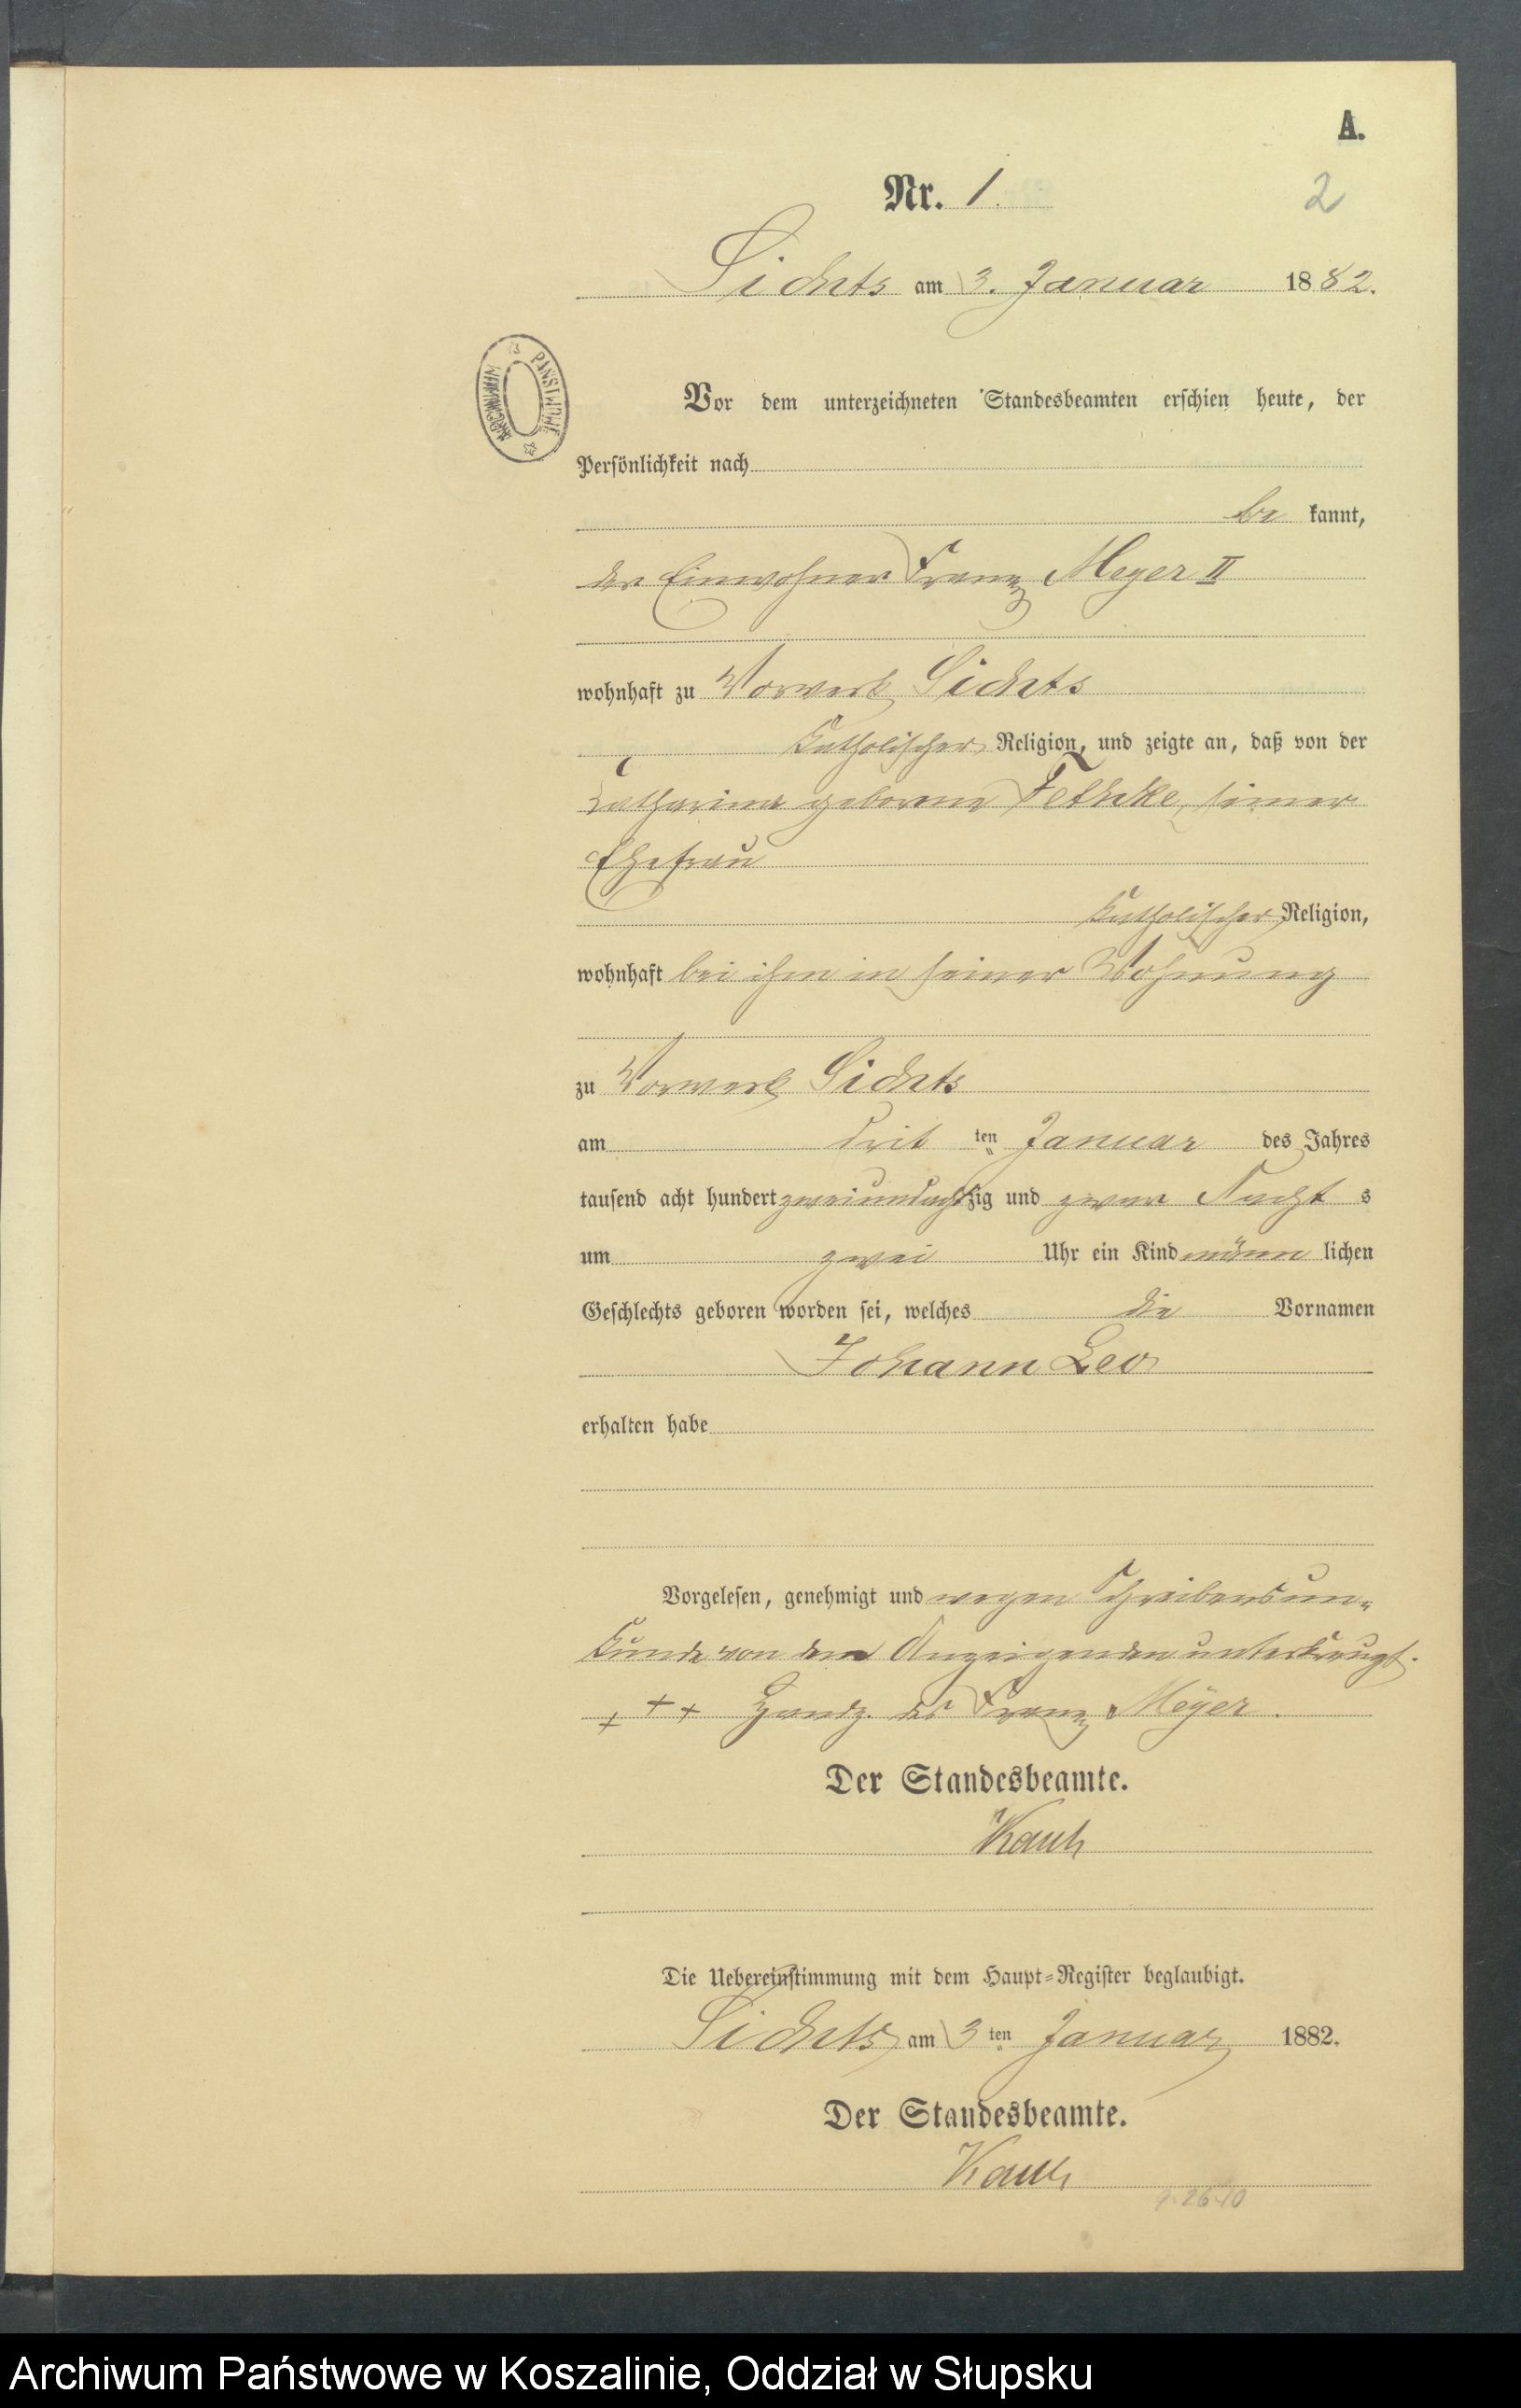 A.
Nr. 1.
2
Lichts am 3. Januar 1882.
ARCHIWUM PAŃSTWOWE
Vor dem unterzeichneten Standesbeamten erschien heute, der
Persönlichkeit nach
be kannt,
der Einwohner Franz Meyer II
wohnhaft zu Vorwerk Lichts
katholischer Religion, und zeigte an, daß von der
Catharina geborene Fethke, seiner
Ehefrau
katholischer Religion,
wohnhaft bei ihm in seiner Wohnung
zu Vorwerk Lichts
am drit ten Januar des Jahres
tausend acht hundert zweiundachtzig und zwar Nacht s
um zwei Uhr ein Kind männ lichen
Geschlechts geboren worden sei, welches die Vornamen
Johann Leo
erhalten habe
Vorgelesen, genehmigt und wegen Schreibensun-
kunde von dem Anzeigenden unterkreuzt.
+ + + Handz. des Franz Meÿer.
Der Standesbeamte.
Die Uebereinstimmung mit dem Haupt=Register beglaubigt.
Lichts am 3 ten Januar 1882.
Der Standesbeamte.
Archiwum Państwowe w Koszalinie, Oddział w Słupsku